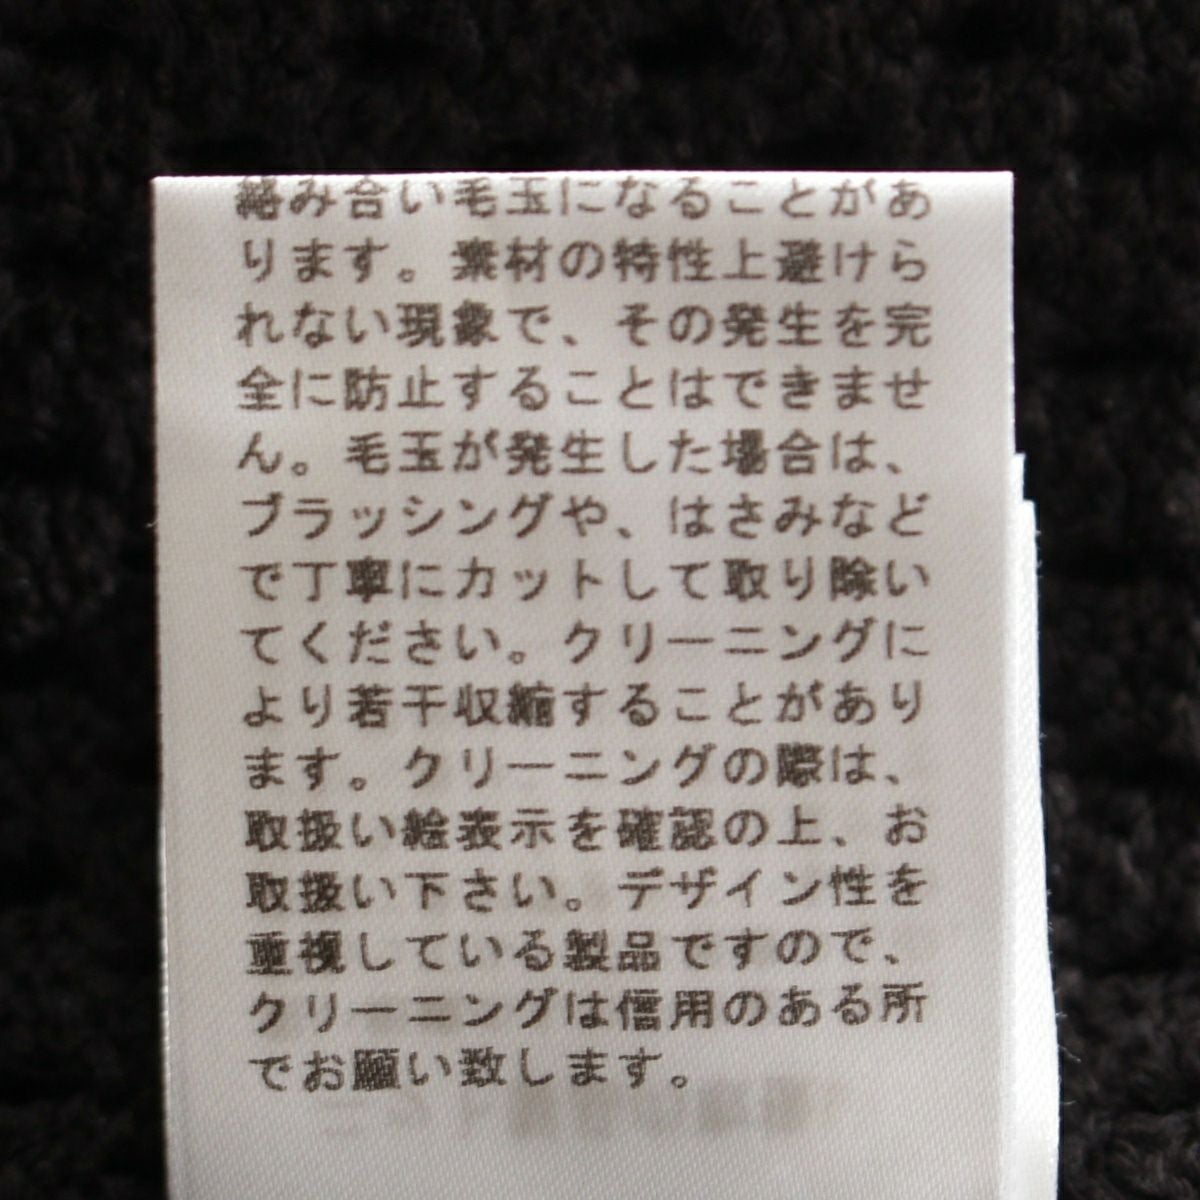 絡み合い毛玉になることがあ
ります。素材の特性上避けら
れない現象で、その発生を完
全に防止することはできませ
ん。毛玉が発生した場合は、
ブラッシングや、はさみなど
で丁寧にカットして取り除い
てください。クリーニングに
より若干収縮することがあり
ます。クリーニングの際は、
取扱い絵表示を確認の上、お
取扱い下さい。デザイン性を
重視している製品ですので、
クリーニングは信用のある所
でお願い致します。